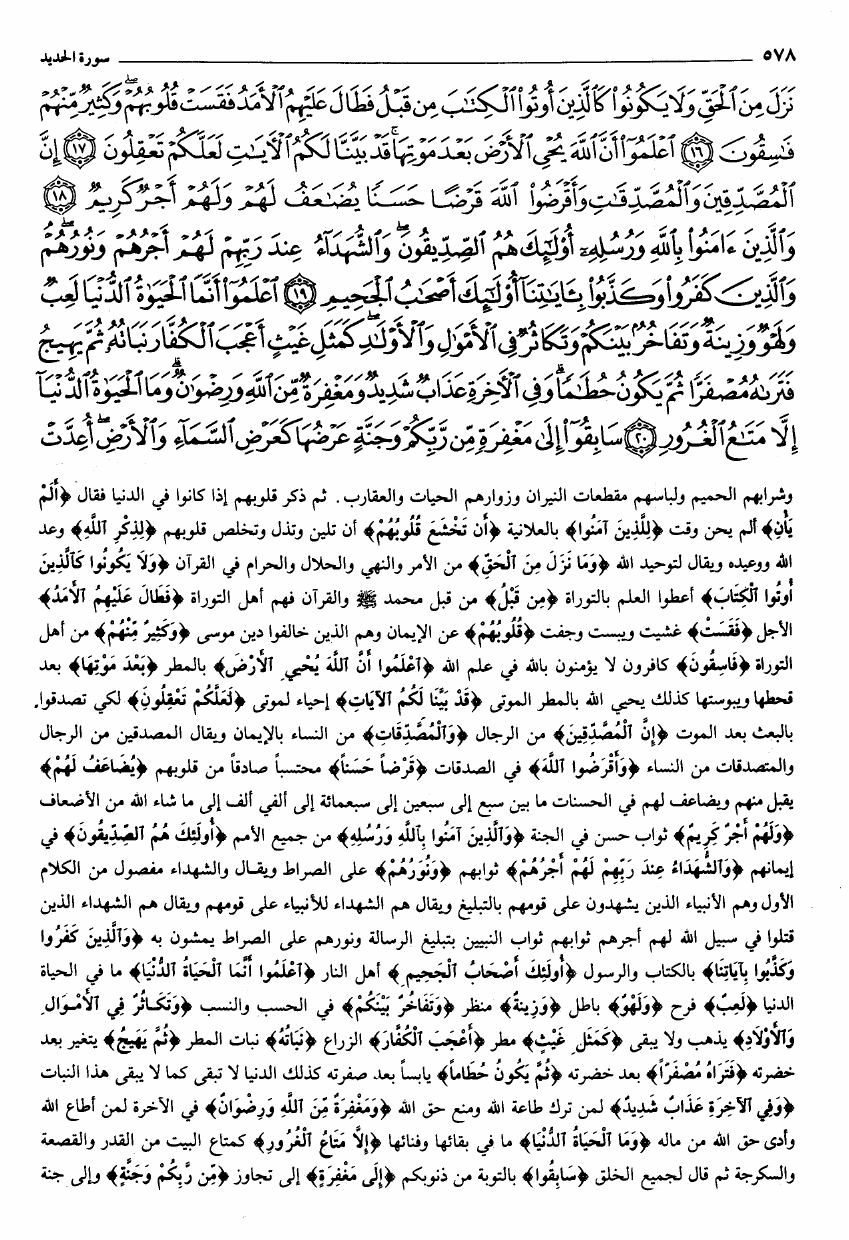 ٥٧٨ سورة الحديد
نَزَلَ مِنَ ٱلْحَقِّ وَلَا يَكُونُوا۟ كَٱلَّذِينَ أُوتُوا۟ ٱلْكِتَٰبَ مِن قَبْلُ فَطَالَ عَلَيْهِمُ ٱلْأَمَدُ فَقَسَتْ قُلُوبُهُمْ ۖ وَكَثِيرٌ مِّنْهُمْ
فَٰسِقُونَ ﴿١٦﴾ ٱعْلَمُوٓا۟ أَنَّ ٱللَّهَ يُحْىِ ٱلْأَرْضَ بَعْدَ مَوْتِهَا ۚ قَدْ بَيَّنَّا لَكُمُ ٱلْءَايَٰتِ لَعَلَّكُمْ تَعْقِلُونَ ﴿١٧﴾ إِنَّ
ٱلْمُصَّدِّقِينَ وَٱلْمُصَّدِّقَٰتِ وَأَقْرَضُوا۟ ٱللَّهَ قَرْضًا حَسَنًا يُضَٰعَفُ لَهُمْ وَلَهُمْ أَجْرٌ كَرِيمٌ ﴿١٨﴾
وَٱلَّذِينَ ءَامَنُوا۟ بِٱللَّهِ وَرُسُلِهِۦٓ أُو۟لَٰٓئِكَ هُمُ ٱلصِّدِّيقُونَ ۖ وَٱلشُّهَدَآءُ عِندَ رَبِّهِمْ لَهُمْ أَجْرُهُمْ وَنُورُهُمْ ۖ
وَٱلَّذِينَ كَفَرُوا۟ وَكَذَّبُوا۟ بِـَٔايَٰتِنَآ أُو۟لَٰٓئِكَ أَصْحَٰبُ ٱلْجَحِيمِ ﴿١٩﴾ ٱعْلَمُوٓا۟ أَنَّمَا ٱلْحَيَوٰةُ ٱلدُّنْيَا لَعِبٌ
وَلَهْوٌ وَزِينَةٌ وَتَفَاخُرٌۢ بَيْنَكُمْ وَتَكَاثُرٌ فِى ٱلْأَمْوَٰلِ وَٱلْأَوْلَٰدِ ۖ كَمَثَلِ غَيْثٍ أَعْجَبَ ٱلْكُفَّارَ نَبَاتُهُۥ ثُمَّ يَهِيجُ
فَتَرَىٰهُ مُصْفَرًّا ثُمَّ يَكُونُ حُطَٰمًا ۖ وَفِى ٱلْءَاخِرَةِ عَذَابٌ شَدِيدٌ وَمَغْفِرَةٌ مِّنَ ٱللَّهِ وَرِضْوَٰنٌ ۚ وَمَا ٱلْحَيَوٰةُ ٱلدُّنْيَآ
إِلَّا مَتَٰعُ ٱلْغُرُورِ ﴿٢٠﴾ سَابِقُوٓا۟ إِلَىٰ مَغْفِرَةٍ مِّن رَّبِّكُمْ وَجَنَّةٍ عَرْضُهَا كَعَرْضِ ٱلسَّمَآءِ وَٱلْأَرْضِ أُعِدَّتْ
وشرابهم الحميم ولباسهم مقطعات النيران وزوارهم الحيات والعقارب. ثم ذكر قلوبهم إذا كانوا في الدنيا فقال ﴿أَلَمْ
يَأْنِ﴾ ألم يحن وقت ﴿لِلَّذِينَ آمَنُوا﴾ بالعلانية ﴿أَن تَخْشَعَ قُلُوبُهُمْ﴾ أن تلين وتذل وتخلص قلوبهم ﴿لِذِكْرِ اللَّهِ﴾ وعد
الله ووعيده ويقال لتوحيد الله ﴿وَمَا نَزَلَ مِنَ ٱلْحَقِّ﴾ من الأمر والنهي والحلال والحرام في القرآن ﴿وَلَا يَكُونُوا كَٱلَّذِينَ
أُوتُوا ٱلْكِتَابَ﴾ أعطوا العلم بالتوراة ﴿مِن قَبْلُ﴾ من قبل محمد ﷺ والقرآن فهم أهل التوراة ﴿فَطَالَ عَلَيْهِمُ ٱلأَمَدُ﴾
الأجل ﴿فَقَسَتْ﴾ غشيت ويبست وجفت ﴿قُلُوبُهُمْ﴾ عن الإيمان وهم الذين خالفوا دين موسى ﴿وَكَثِيرٌ مِّنْهُمْ﴾ من أهل
التوراة ﴿فَاسِقُونَ﴾ كافرون لا يؤمنون بالله في علم الله ﴿ٱعْلَمُوا أَنَّ ٱللَّهَ يُحْيِي ٱلأَرْضَ﴾ بالمطر ﴿بَعْدَ مَوْتِهَا﴾ بعد
قحطها ويبوستها كذلك يحيي الله بالمطر الموتى ﴿قَدْ بَيَّنَا لَكُمُ ٱلآيَاتِ﴾ إحياء لموتى ﴿لَعَلَّكُمْ تَعْقِلُونَ﴾ لكي تصدقوا.
بالبعث بعد الموت ﴿إِنَّ ٱلْمُصَّدِّقِينَ﴾ من الرجال ﴿وَٱلْمُصَّدِّقَاتِ﴾ من النساء بالإيمان ويقال المصدقين من الرجال
والمتصدقات من النساء ﴿وَأَقْرَضُوا ٱللَّهَ﴾ في الصدقات ﴿قَرْضاً حَسَناً﴾ محتسباً صادقاً من قلوبهم ﴿يُضَاعَفُ لَهُمْ﴾
يقبل منهم ويضاعف لهم في الحسنات ما بين سبع إلى سبعين إلى سبعمائة إلى ألفي ألف إلى ما شاء الله من الأضعاف
﴿وَلَهُمْ أَجْرٌ كَرِيمٌ﴾ ثواب حسن في الجنة ﴿وَٱلَّذِينَ آمَنُوا بِٱللَّهِ وَرُسُلِهِ﴾ من جميع الأمم ﴿أُولَئِكَ هُمُ ٱلصِّدِّيقُونَ﴾ في
إيمانهم ﴿وَٱلشُّهَدَاءُ عِندَ رَبِّهِمْ لَهُمْ أَجْرُهُمْ﴾ ثوابهم ﴿وَنُورُهُمْ﴾ على الصراط ويقال والشهداء مفصول من الكلام
الأول وهم الأنبياء الذين يشهدون على قومهم بالتبليغ ويقال هم الشهداء للأنبياء على قومهم ويقال هم الشهداء الذين
قتلوا في سبيل الله لهم أجرهم ثوابهم ثواب النبيين بتبليغ الرسالة ونورهم على الصراط يمشون به ﴿وَٱلَّذِينَ كَفَرُوا
وَكَذَّبُوا بِآيَاتِنَا﴾ بالكتاب والرسول ﴿أُولَئِكَ أَصْحَابُ ٱلْجَحِيمِ﴾ أهل النار ﴿ٱعْلَمُوا أَنَّمَا ٱلْحَيَاةُ ٱلدُّنْيَا﴾ ما في الحياة
الدنيا ﴿لَعِبٌ﴾ فرح ﴿وَلَهْوٌ﴾ باطل ﴿وَزِينَةٌ﴾ منظر ﴿وَتَفَاخُرٌ بَيْنَكُمْ﴾ في الحسب والنسب ﴿وَتَكَاثُرٌ فِي ٱلأَمْوَالِ
وَٱلأَوْلَادِ﴾ يذهب ولا يبقى ﴿كَمَثَلِ غَيْثٍ﴾ مطر ﴿أَعْجَبَ ٱلْكُفَّارَ﴾ الزراع ﴿نَبَاتُهُ﴾ نبات المطر ﴿ثُمَّ يَهِيجُ﴾ يتغير بعد
خضرته ﴿فَتَرَاهُ مُصْفَرّاً﴾ بعد خضرته ﴿ثُمَّ يَكُونُ حُطَاماً﴾ يابساً بعد صفرته كذلك الدنيا لا تبقى كما لا يبقى هذا النبات
﴿وَفِي ٱلآخِرَةِ عَذَابٌ شَدِيدٌ﴾ لمن ترك طاعة الله ومنع حق الله ﴿وَمَغْفِرَةٌ مِّنَ ٱللَّهِ وَرِضْوَانٌ﴾ في الآخرة لمن أطاع الله
وأدى حق الله من ماله ﴿وَمَا ٱلْحَيَاةُ ٱلدُّنْيَا﴾ ما في بقائها وفنائها ﴿إِلَّا مَتَاعُ ٱلْغُرُورِ﴾ كمتاع البيت من القدر والقصعة
والسكرجة ثم قال لجميع الخلق ﴿سَابِقُوا﴾ بالتوبة من ذنوبكم ﴿إِلَى مَغْفِرَةٍ﴾ إلى تجاوز ﴿مِّن رَّبِّكُمْ وَجَنَّةٍ﴾ وإلى جنة